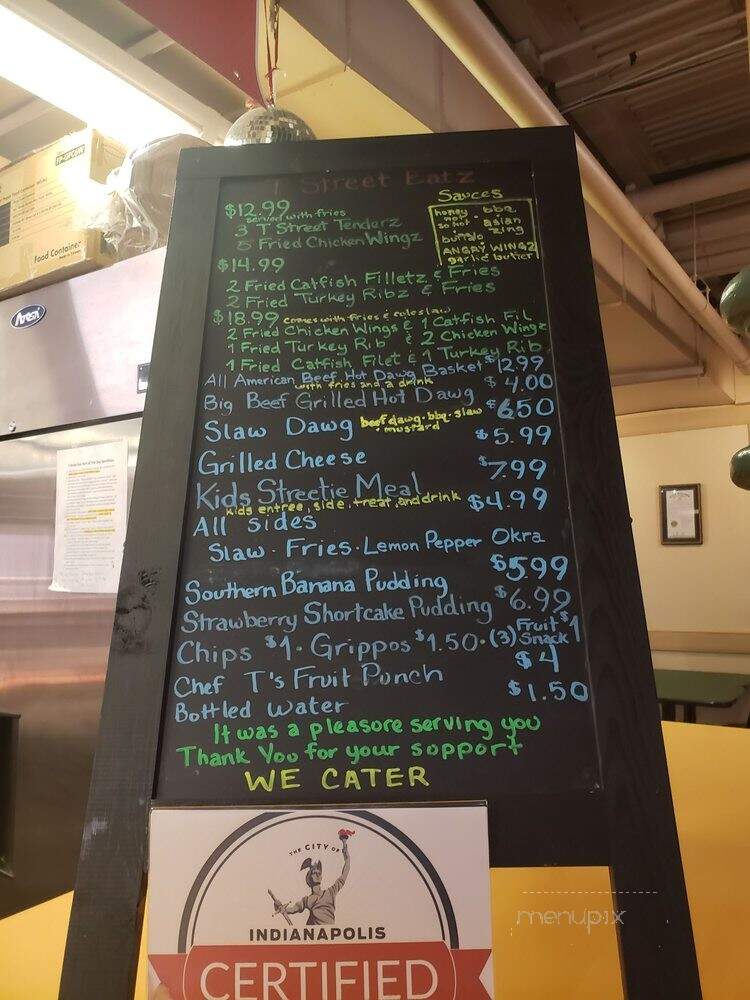 T Street Eatz
$12.99
served with fries
3 T Street Tenderz
5 Fried Chicken Wingz
Sauces
honey bbq
hot asian
so hot zing
buffalo
ANGRY WINGZ
garlic butter
$14.99
2 Fried Catfish Filletz & Fries
2 Fried Turkey Ribz & Fries
$18.99 comes with fries & coleslaw
2 Fried Chicken Wings & 1 Catfish Fil
1 Fried Turkey Rib & 2 Chicken Wingz
1 Fried Catfish Filet & 1 Turkey Rib
All American Beef Hot Dawg Basket $12.99
with fries and a drink
Big Beef Grilled Hot Dawg $4.00
Slaw Dawg beef dawg · bbq · slaw · mustard $6.50
Grilled Cheese $5.99
Kids Streetie Meal $7.99
kids entree, side, treat, and drink
All sides $4.99
Slaw · Fries · Lemon Pepper Okra
Southern Banana Pudding $5.99
Strawberry Shortcake Pudding $6.99
Chips $1 · Grippos $1.50 · (3) Fruit Snack $1
Chef T's Fruit Punch $4
Bottled Water $1.50
It was a pleasure serving you
Thank You for your support
WE CATER
THE CITY OF
INDIANAPOLIS
CERTIFIED
Food Container
Atosa
menupix